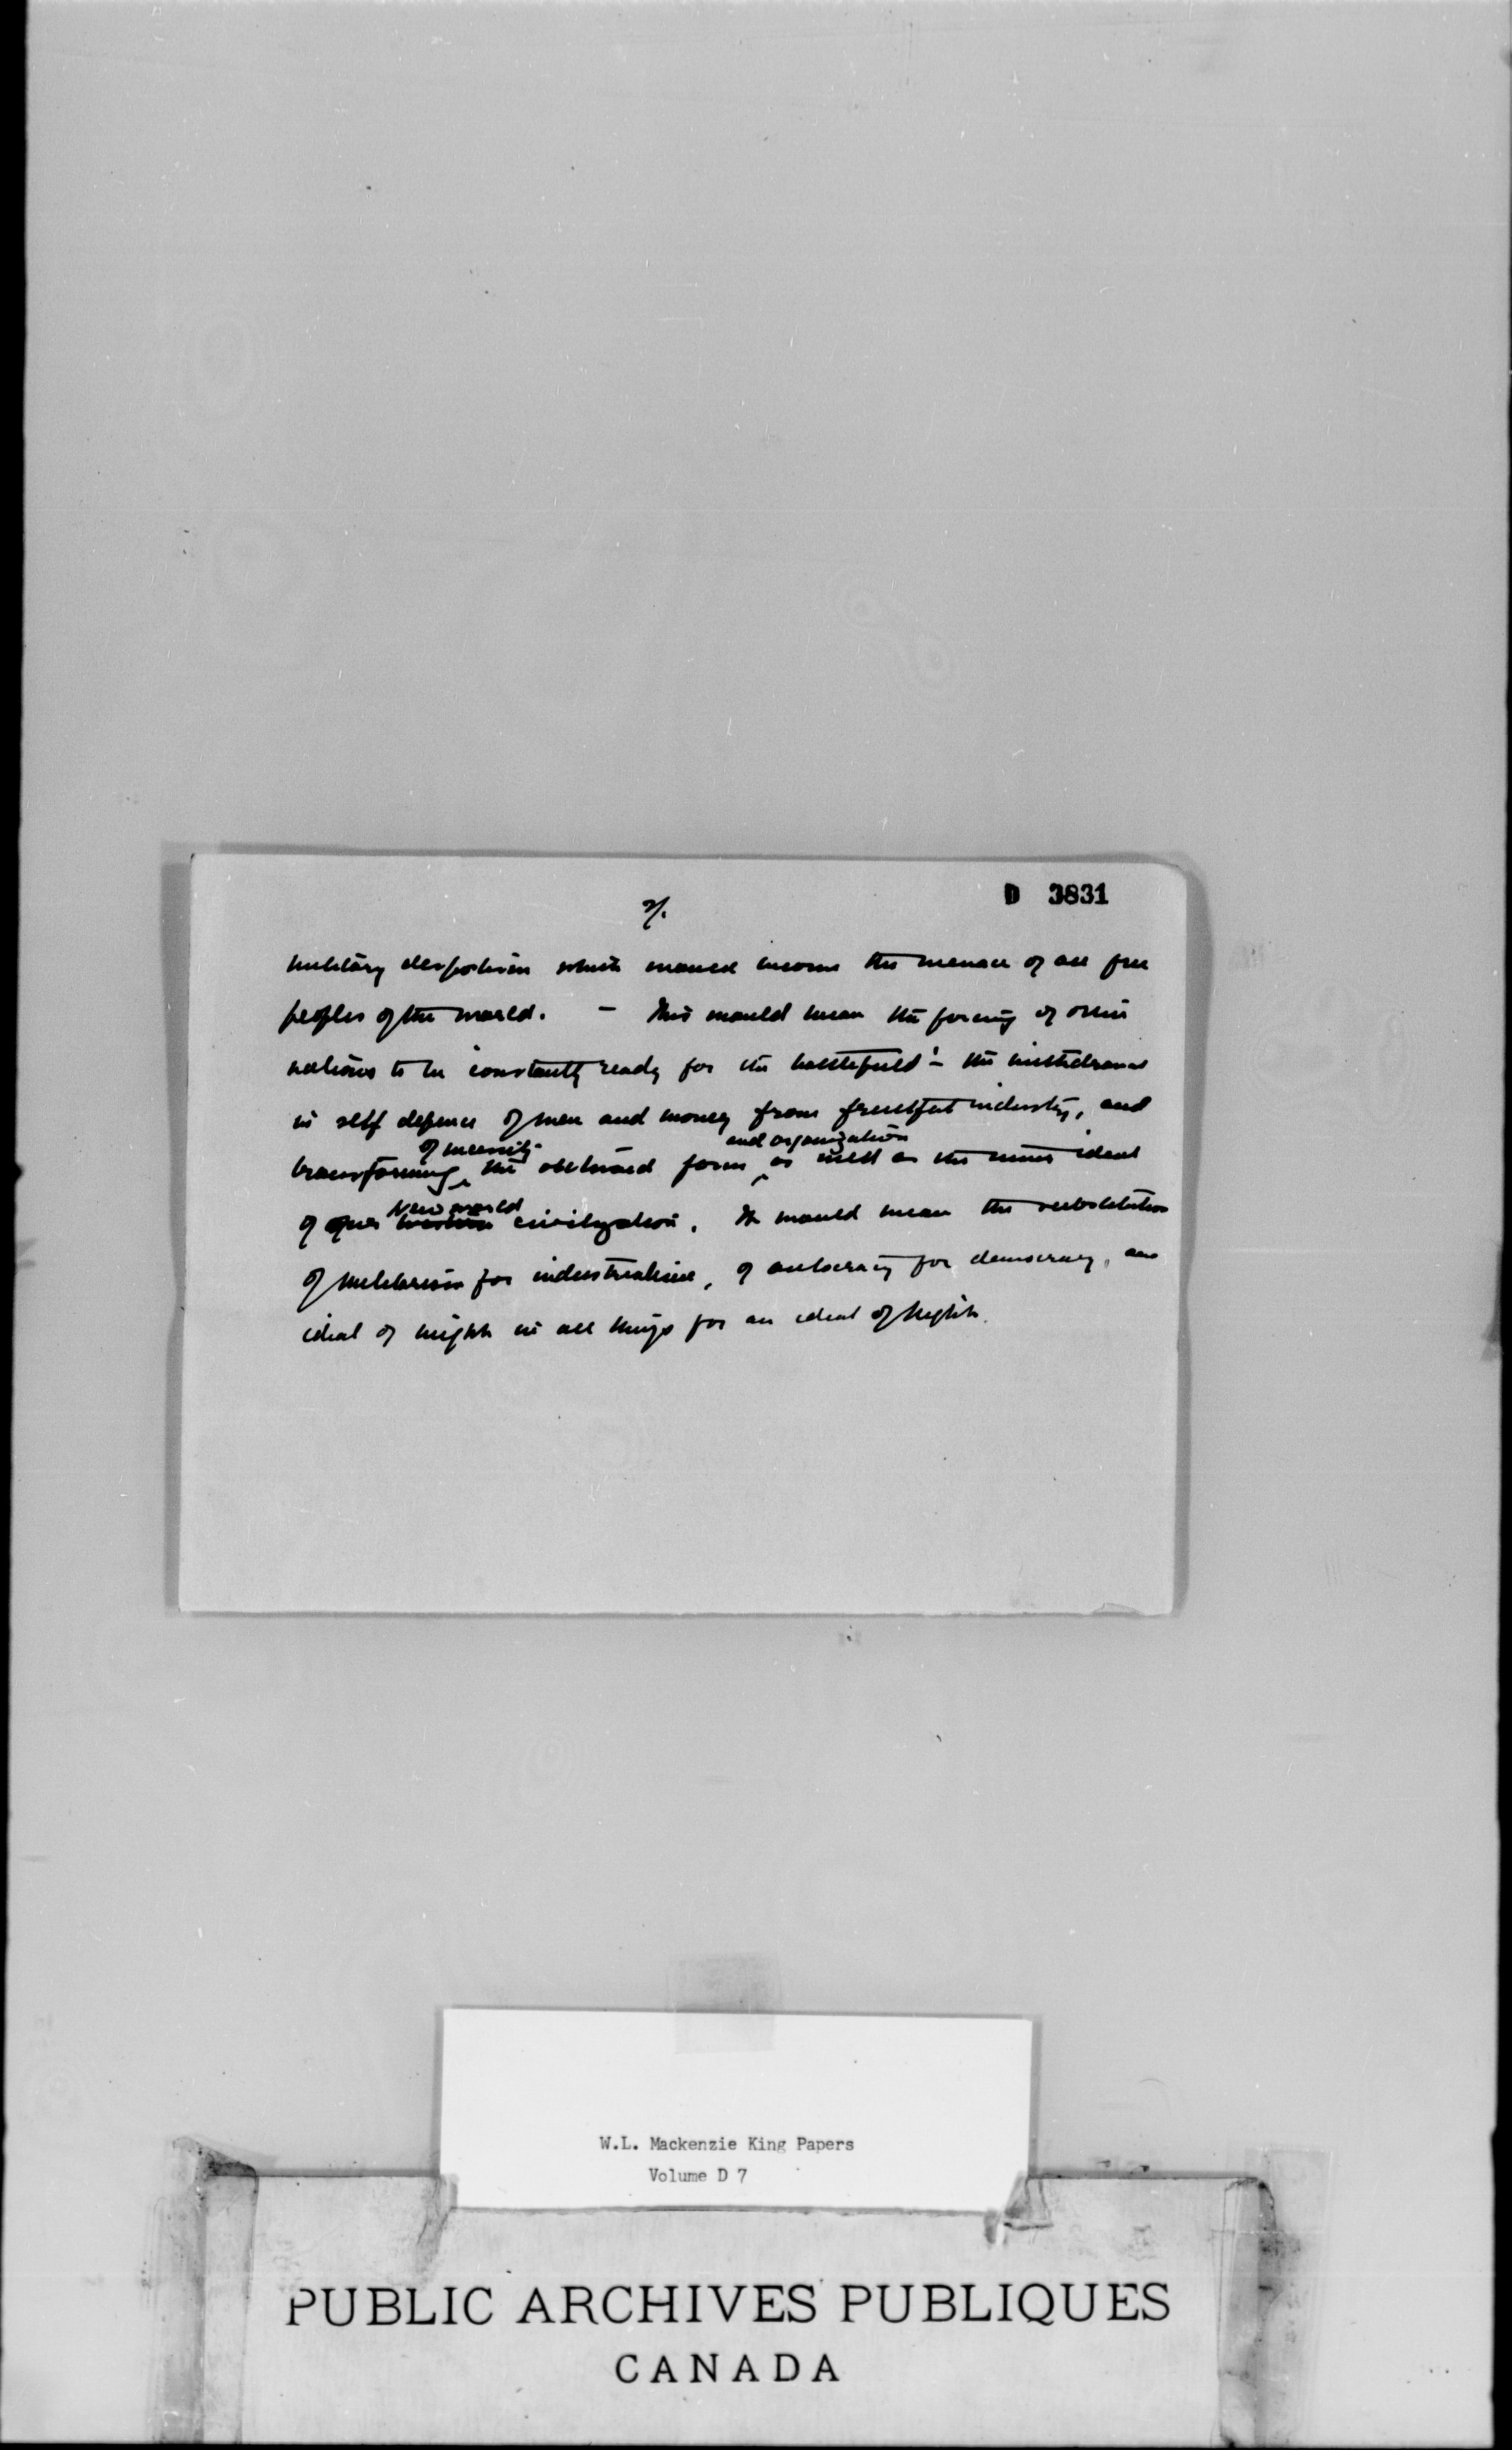 2/.
D 3831
military despotism which would become the menace of all free
peoples of the world. – This would mean the forcing of other
nations to be constantly ready for the battlefield – the withdrawal
in self defence of men and money from fruitful industry, and
of necessity and organization
transforming the outward form as well as the inner ideal
New world
of our western civilization. It would mean the substitution
of militarism for industrialism, of autocracy for democracy, an
ideal of might in all things for an ideal of right.
W.L. Mackenzie King Papers
Volume D 7
PUBLIC ARCHIVES PUBLIQUES
CANADA